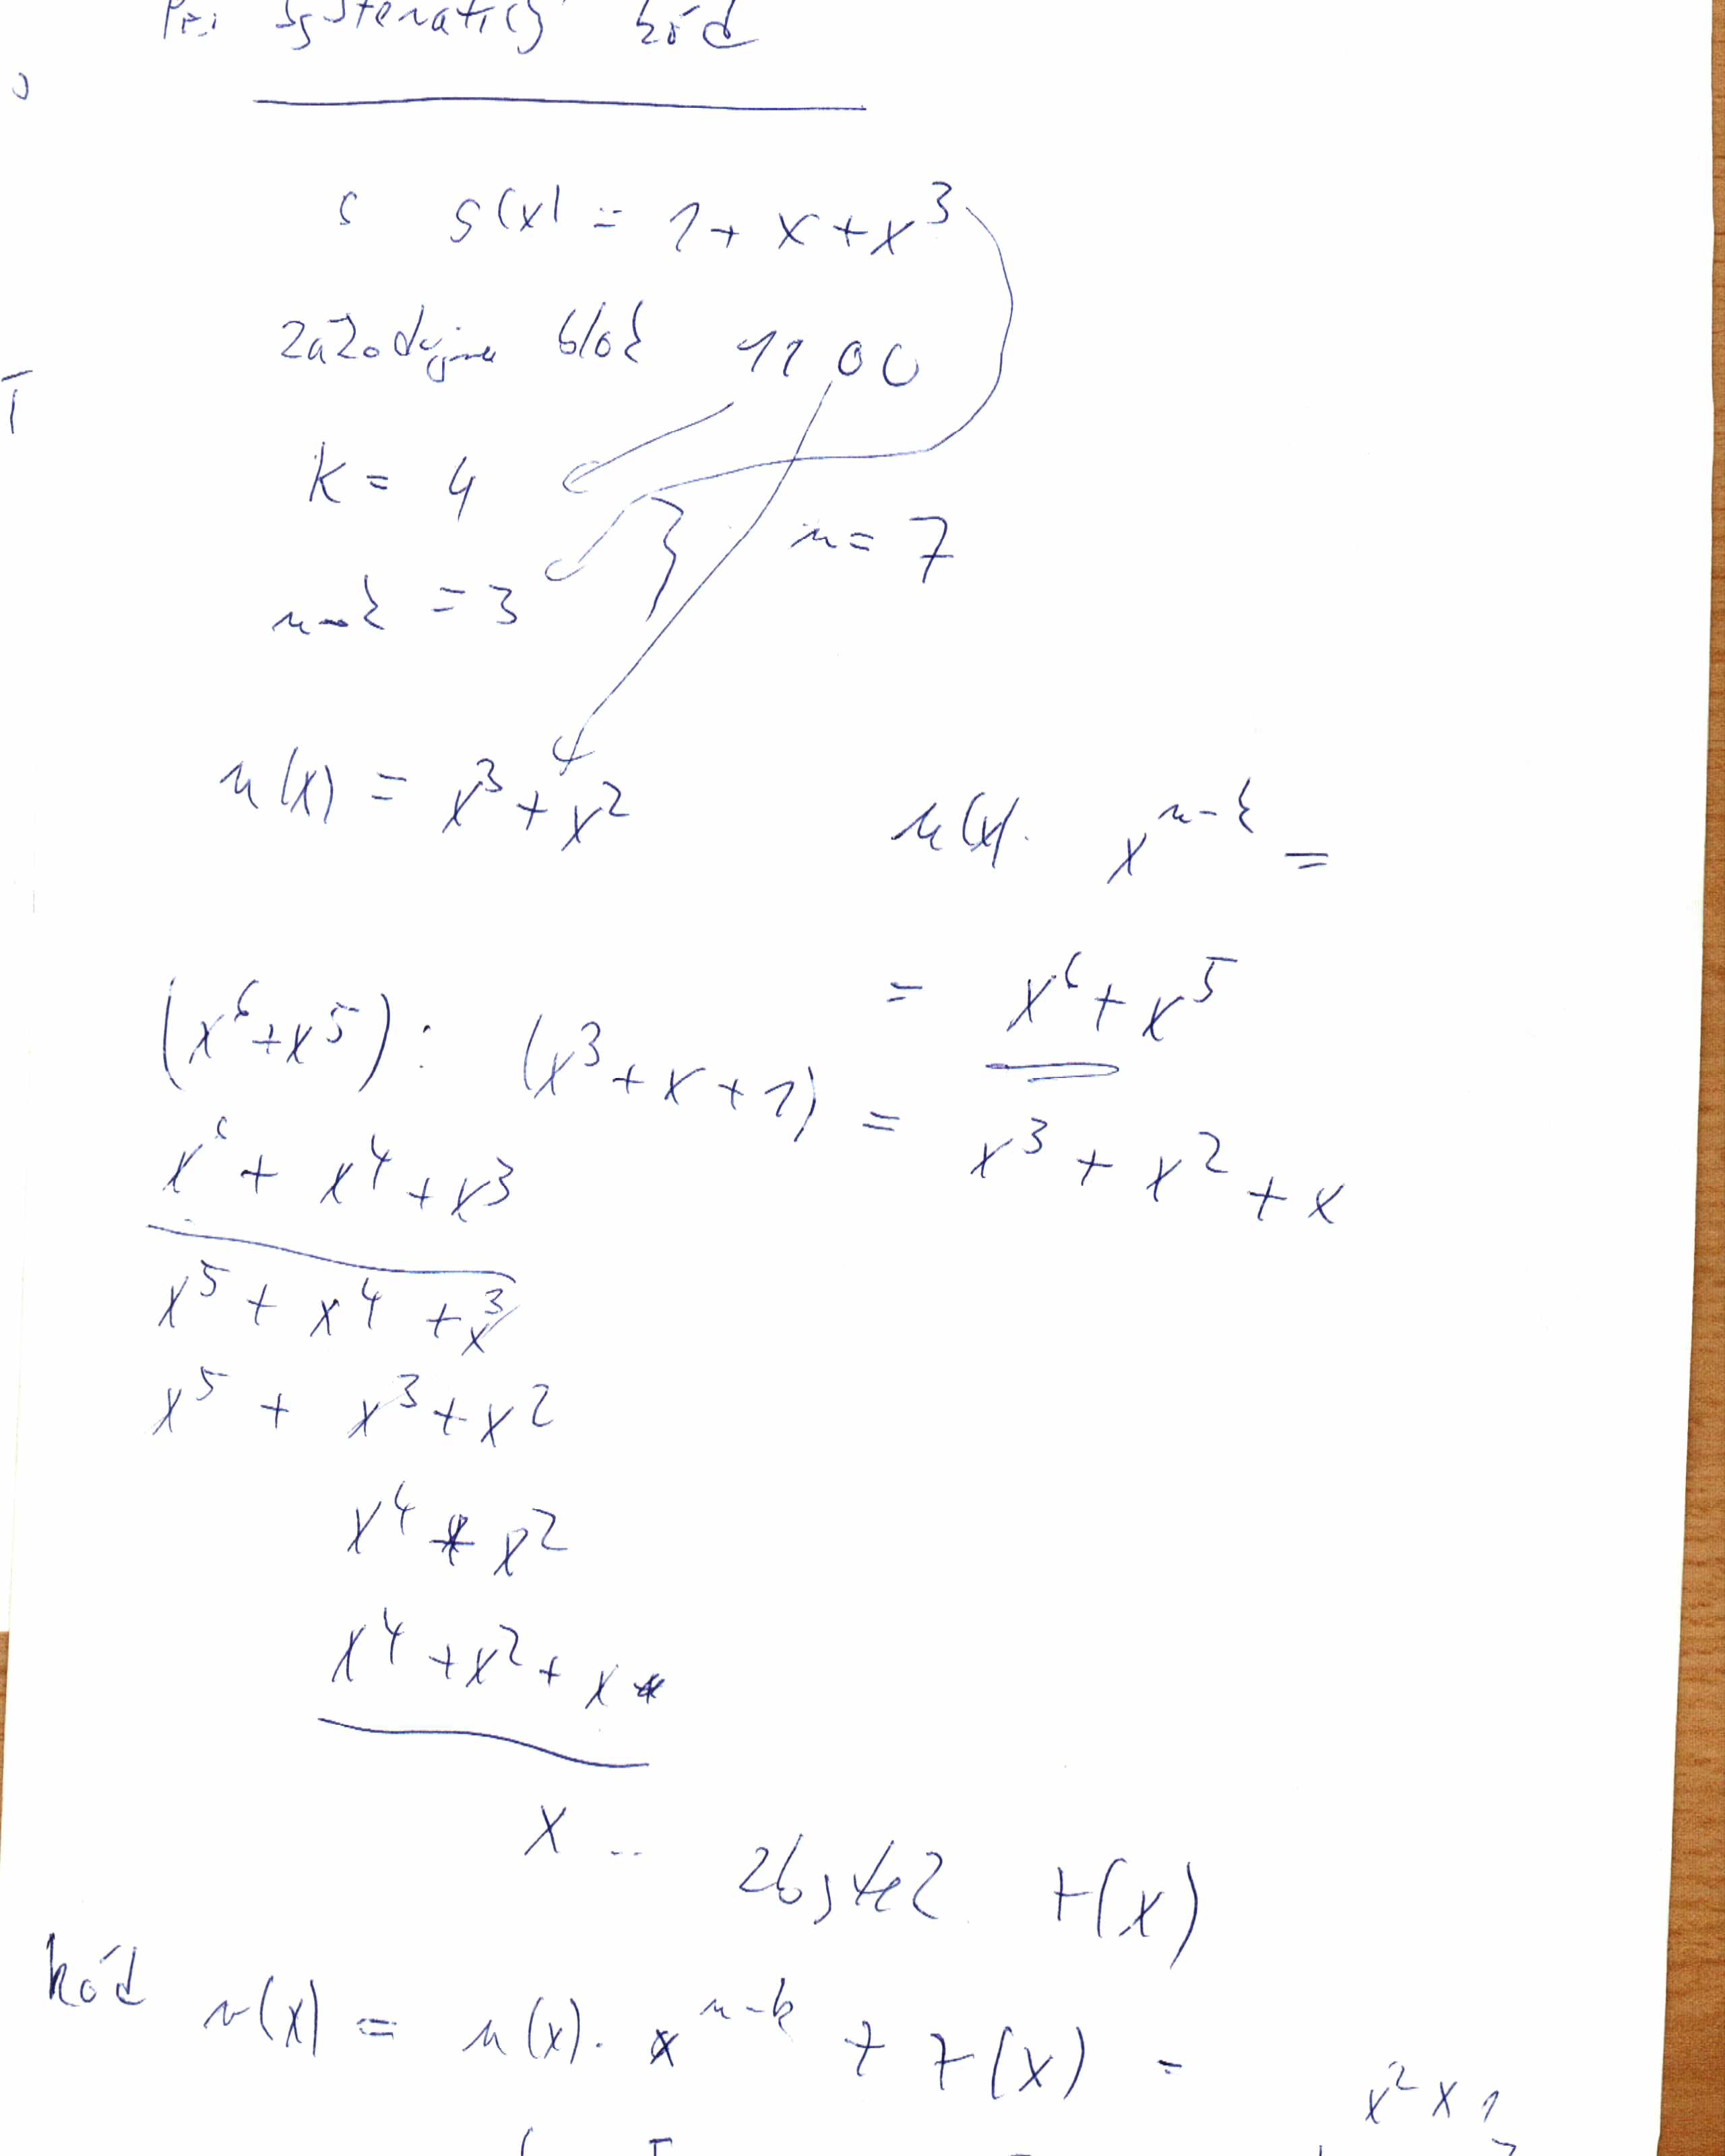 Při systematický kód
s g(x) = 1 + x + x³
zakódujme blok 1100
k = 4
n-k = 3
n = 7
u(x) = x³ + x²
u(x) · x^(n-k) =
= x⁶ + x⁵
(x⁶+x⁵) : (x³ + x + 1) = x³ + x² + x
x⁶ + x⁴ + x³
x⁵ + x⁴ + x³
x⁵ + x³ + x²
x⁴ + x²
x⁴ + x² + x
x .. zbytek r(x)
kód v(x) = u(x) · x^(n-k) + r(x) =
x² x 1